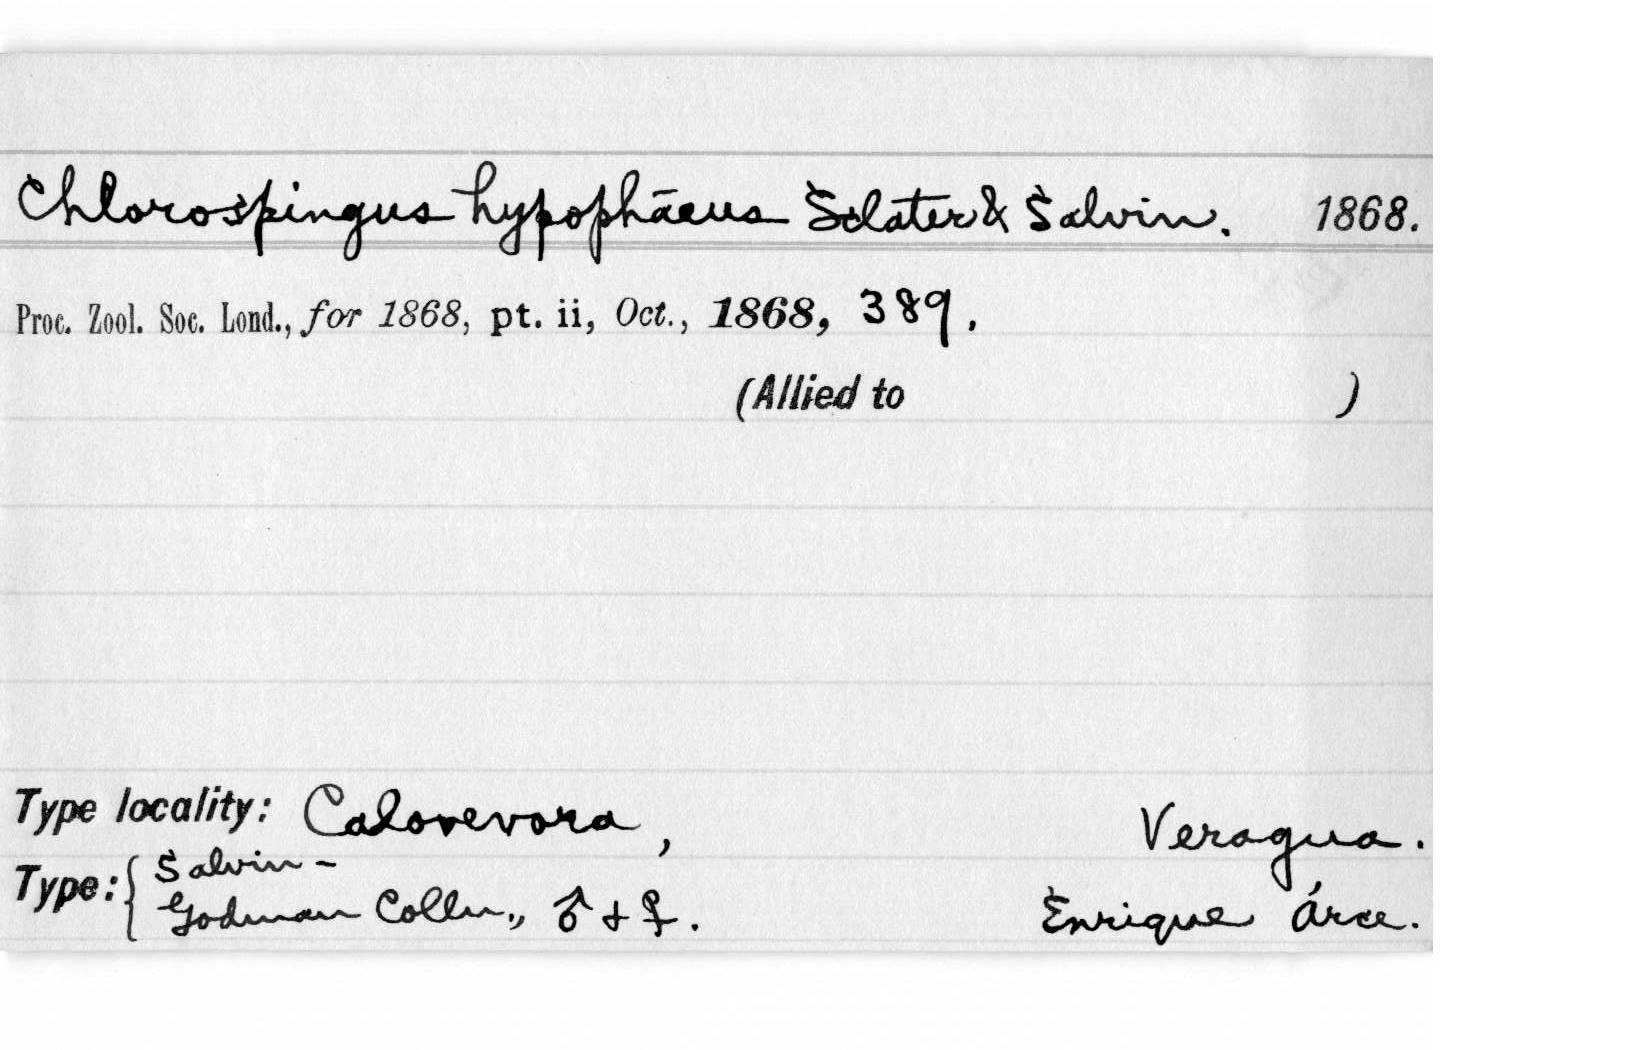 Chlorospingus hypophæus Sclater & Salvin. 1868.
Proc. Zool. Soc. Lond., for 1868, pt. ii, Oct., 1868, 389.
(Allied to )
Type locality: Calovevora, Veragua.
Type: { Salvin-
Godman Colln., ♂ + ♀. Enrique Árce.